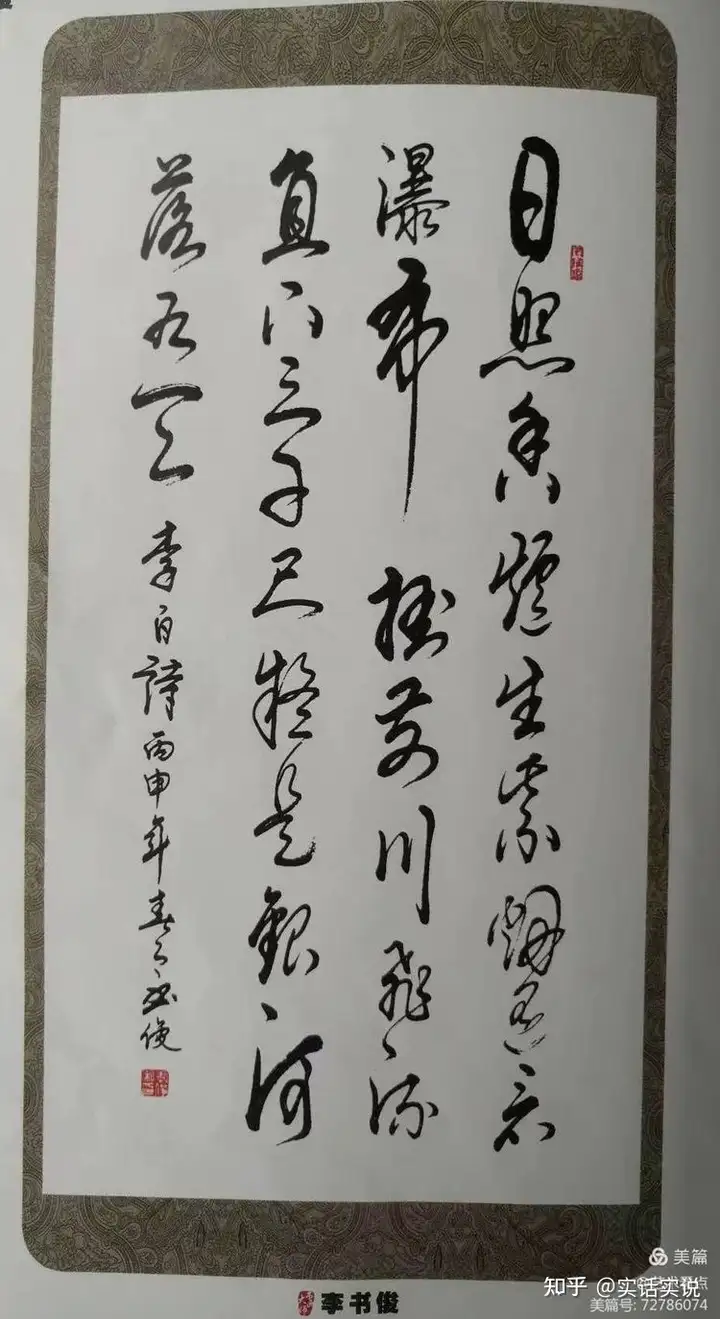 日照香爐生紫煙遥看
瀑布掛前川飛流
直下三千尺疑是銀河
落九天 李白詩 丙申年春 书俊
李书俊
美篇
知乎 @实话实说
美篇号: 72786074